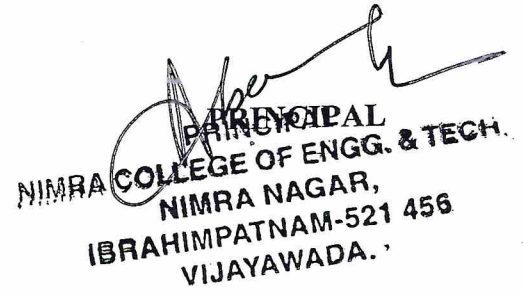 PRINCIPAL
PRINCIPAL
NIMRA COLLEGE OF ENGG. & TECH.
NIMRA NAGAR,
IBRAHIMPATNAM-521 456
VIJAYAWADA.